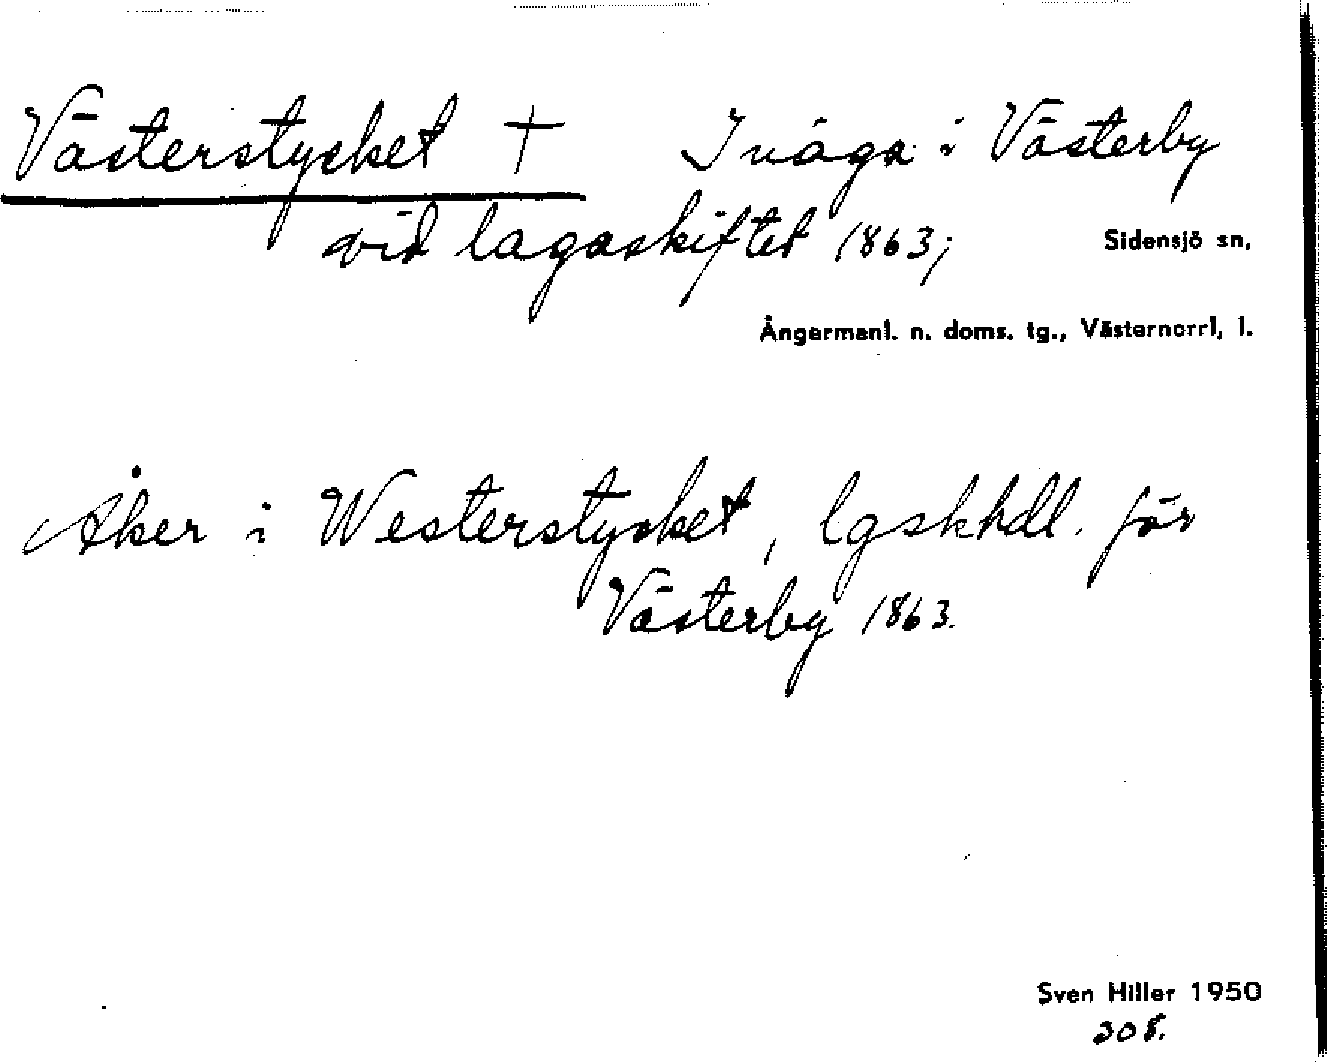 Västerstycket † Inäga i Västerby
vid lagaskiftet 1863;
Sidensjö sn,
Ångermanl. n. doms. tg., Västernorrl, l.
Åker i Westerstycket, lgskhdl. för
Västerby 1863.
Sven Hiller 1950
208.